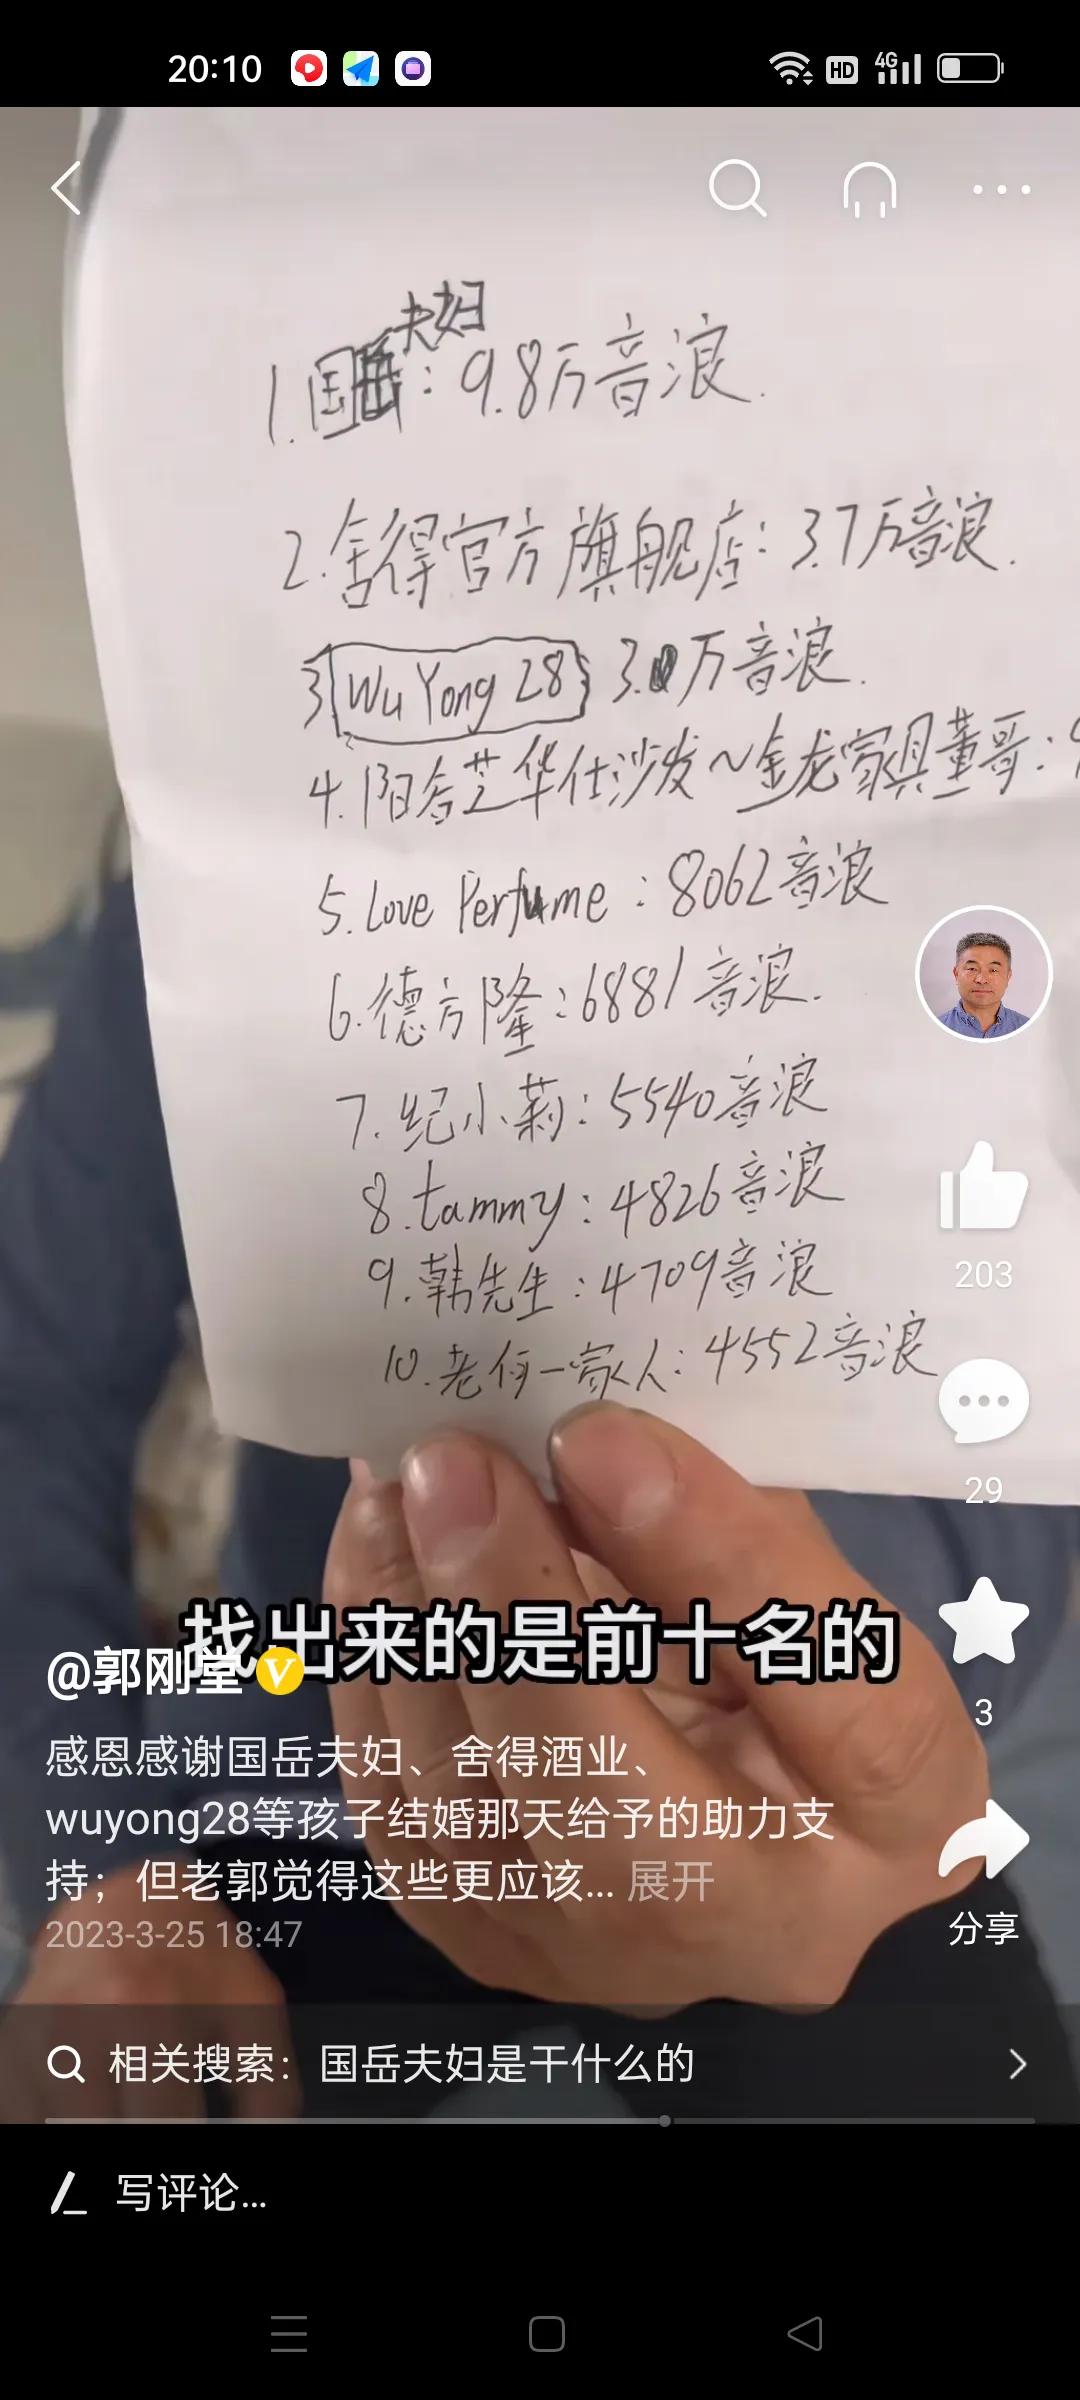 20:10
HD
4G
夫妇
1.国岳：9.8万音浪.
2.舍得官方旗舰店：3.7万音浪.
3.Wu Yong 28 3.0万音浪.
4.阳谷芝华仕沙发～金龙家具董哥：9
5.Love Perfume：8062音浪
6.德方隆：6881音浪.
7.纪小莉：5540音浪
8.tammy：4826音浪
9.韩先生：4709音浪
10.老何一家人：4552音浪
203
29
找出来的是前十名的
@郭刚堂
3
感恩感谢国岳夫妇、舍得酒业、
wuyong28等孩子结婚那天给予的助力支
持；但老郭觉得这些更应该... 展开
2023-3-25 18:47
分享
相关搜索：国岳夫妇是干什么的
写评论...